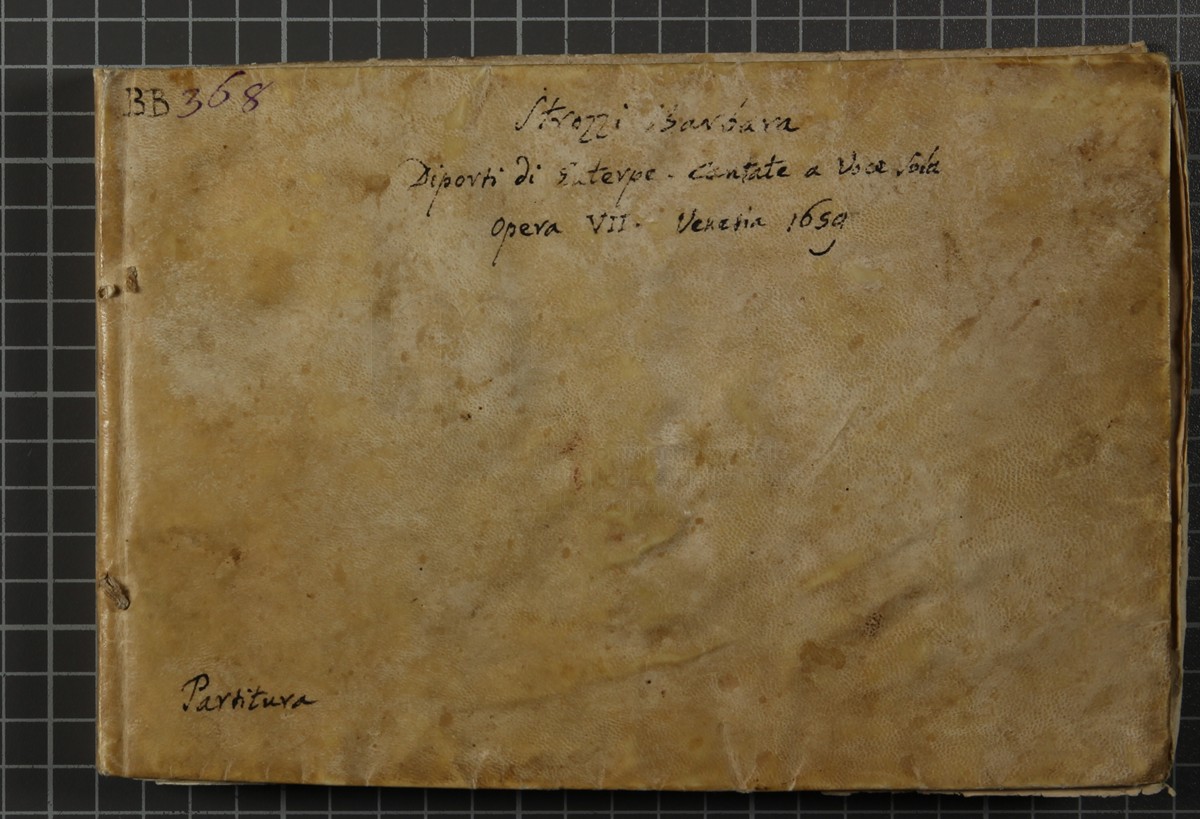 BB 368
Strozzi Barbara
Diporti di Euterpe. Cantate a Voce Sola
Opera VII. Venezia 1659
Partitura